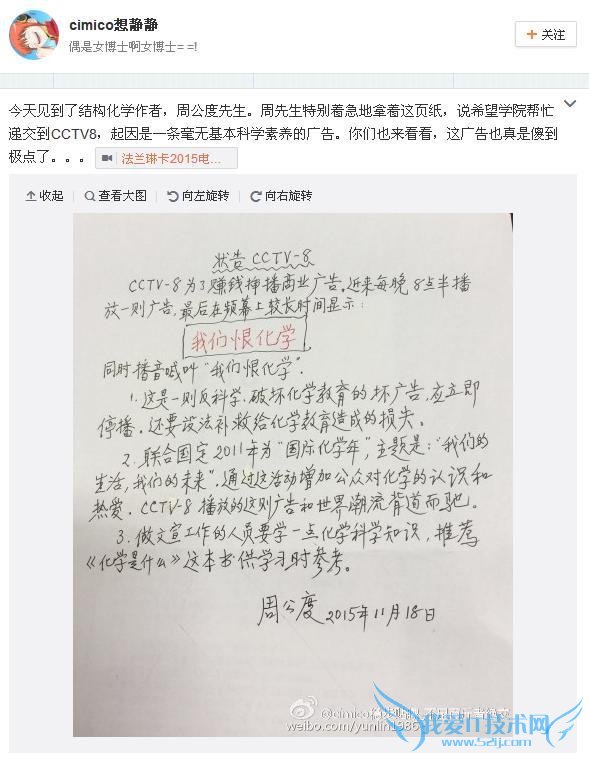 cimico想静静
偶是女博士啊女博士= =!
+ 关注
今天见到了结构化学作者，周公度先生。周先生特别着急地拿着这页纸，说希望学院帮忙
递交到CCTV8，起因是一条毫无基本科学素养的广告。你们也来看看，这广告也真是傻到
极点了。。。 法兰琳卡2015电...
收起 查看大图 向左旋转 向右旋转
状告 CCTV-8
CCTV-8为了赚钱插播商业广告。近来每晚8点半播
放一则广告，最后在频幕上较长时间显示：
我们恨化学
同时播音喊叫“我们恨化学”.
1. 这是一则反科学、破坏化学教育的坏广告，应立即
停播。还要设法补救给化学教育造成的损失。
2. 联合国定2011年为“国际化学年”，主题是：“我们的
生活，我们的未来”。通过这活动增加公众对化学的认识和
热爱。CCTV-8播放的这则广告和世界潮流背道而驰。
3. 做文宣工作的人员要学一点化学科学知识，推荐
《化学是什么》这本书供学习时参考。
周公度 2015年11月18日
@cimico
weibo.com/yunlin1986
我爱IT技术网
www.52ij.com